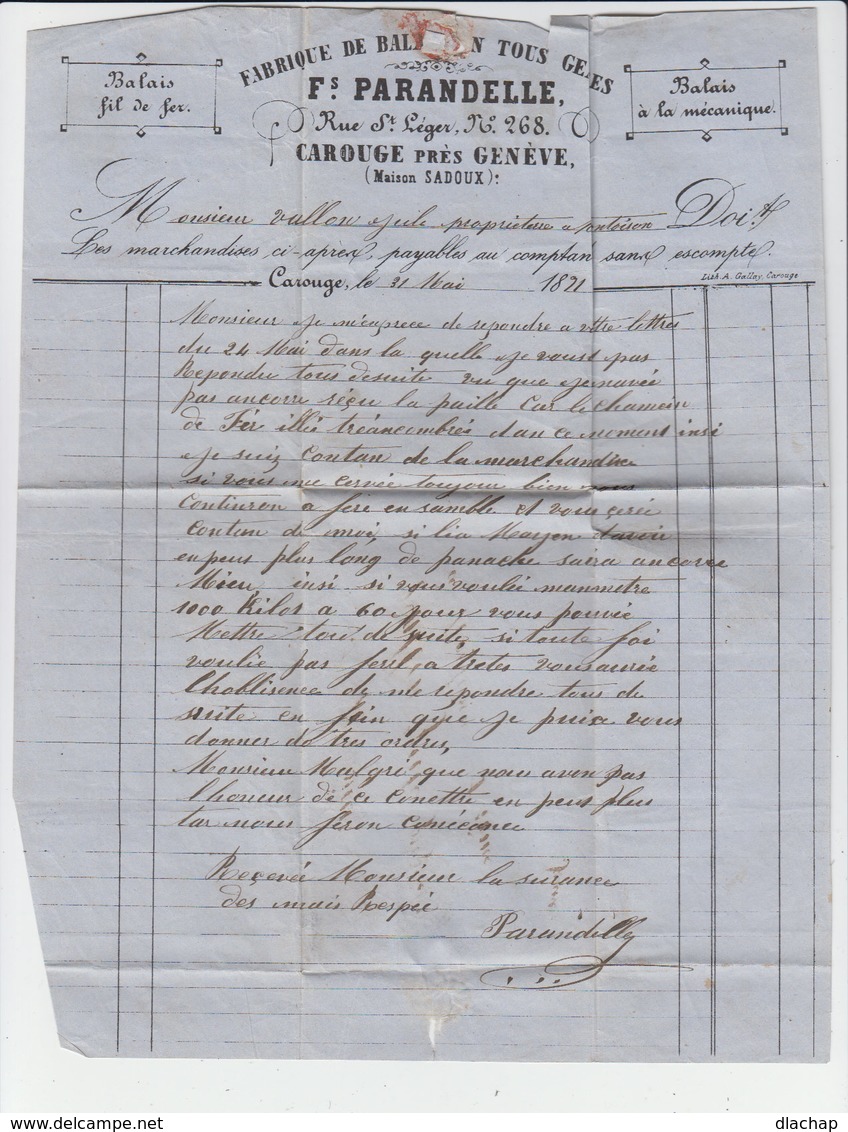 FABRIQUE DE BAL EN TOUS GENRES
Balais
fil de fer.
Fs. PARANDELLE,
Rue St. Léger, No. 268.
CAROUGE PRÈS GENÈVE,
(Maison SADOUX):
Balais
à la mécanique.
Monsieur vallon Jule proprietere a pontoison Doit
Les marchandises ci-après, payables au comptant sans escompte.
Lith. A. Gallay, Carouge
Carouge, le 31 Mai 1871
Monsieur je m'emprece de repondre a vttre lettres
du 24 Mai dans la quelle je vous pas
Repondu tous desuite vu que je navée
pas ancorre réçu la paille Car le chamein
de Fér illié tréancombrés dan ce moment insi
Je suis Contan de la marchandise
si vous me cervée toujour bien nous
Continron a fére en samble et vous cerée
Contan de moi, si lia Moyen davoir
en peus plus long de panache saira ancorre
Mieu, insi si vous voulée manmetre
1000 Kilos a 60 pour vous pouvée
Mettre tou de suite, si toute foi
voulée pas
l'hoblisence de me repondre tous de
suite en fein que je puice vous
donner dotres ordres,
Monsieur Malgri que nous avon pas
l'honeur de ce Conettre en peus plus
tar nous feron conécance
Reçevée Monsieur la surance
des mais Respée
Parandelle
dlachap